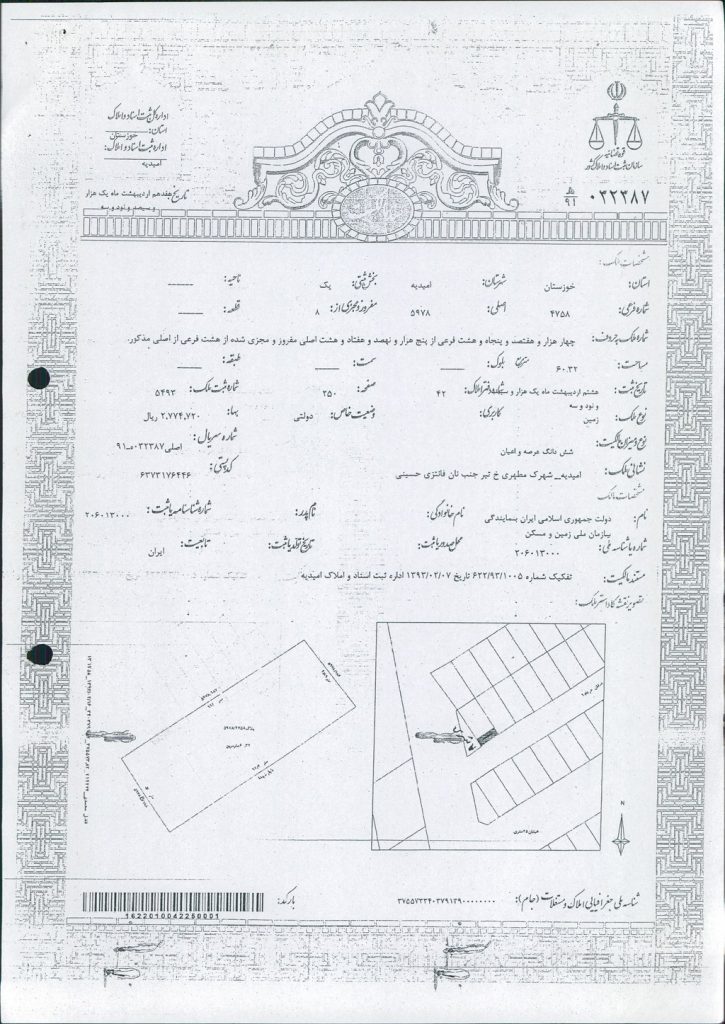 قوه قضائیه
سازمان ثبت اسناد و املاک کشور
۰۳۲۳۸۷
۹۱
اداره کل ثبت اسناد و املاک
استان: خوزستان
اداره ثبت اسناد و املاک:
امیدیه
تاریخ هفدهم اردیبهشت ماه یک هزار
و سیصد و نود و سه
مشخصات ملک:
استان: خوزستان شهرستان: امیدیه بخش ثبتی: یک ناحیه: ـــــ
شماره فرعی: ۴۷۵۸ اصلی: ۵۹۷۸ مفروز و مجزی از: ۸ قطعه: ـــــ
شماره ملک بحروف: چهار هزار و هفتصد و پنجاه و هشت فرعی از پنج هزار و نهصد و هفتاد و هشت اصلی مفروز و مجزی شده از هشت فرعی از اصلی مذکور.
مساحت: ۶۰.۳۲ متر مربع بلوک: ـــــ سمت: ـــــ طبقه: ـــــ
تاریخ ثبت: هشتم اردیبهشت ماه یک هزار و سیصد و نود و سه شماره دفتر املاک: ۴۲ صفحه: ۲۵۰ شماره ثبت ملک: ۵۴۹۳
نوع ملک: زمین کاربری: وضعیت خاص: دولتی بهاء: ۲,۷۷۴,۷۲۰ ریال
نوع و میزان مالکیت: شش دانگ عرصه و اعیان شماره سریال: اصلی ۰۳۲۳۸۷ـ۹۱
نشانی ملک: امیدیه_ شهرک مطهری خ تیر جنب نان فانتزی حسینی کد پستی: ۶۳۷۳۱۷۶۴۴۶
مشخصات مالک
نام: دولت جمهوری اسلامی ایران بنمایندگی سازمان ملی زمین و مسکن نام خانوادگی: نام پدر: شماره شناسنامه یا ثبت: ۲۰۶۰۱۳۰۰۰
شماره یا شناسه ملی: ۲۰۶۰۱۳۰۰۰ محل صدور یا ثبت: تاریخ تولد یا ثبت: تابعیت: ایران
مستند مالکیت: تفکیک شماره ۶۲۲/۹۳/۱۰۰۵ تاریخ ۱۳۹۳/۰۲/۰۷ اداره ثبت اسناد و املاک امیدیه
تصویر نقشه کاداستر ملک:
N
شناسه ملی جغرافیایی املاک و مستغلات (جام): ۳۷۵۵۷۳۳۴۰۳۷۹۱۳۹۰۰۰۰۰۰۰۰
بارکد:
1622010042250001